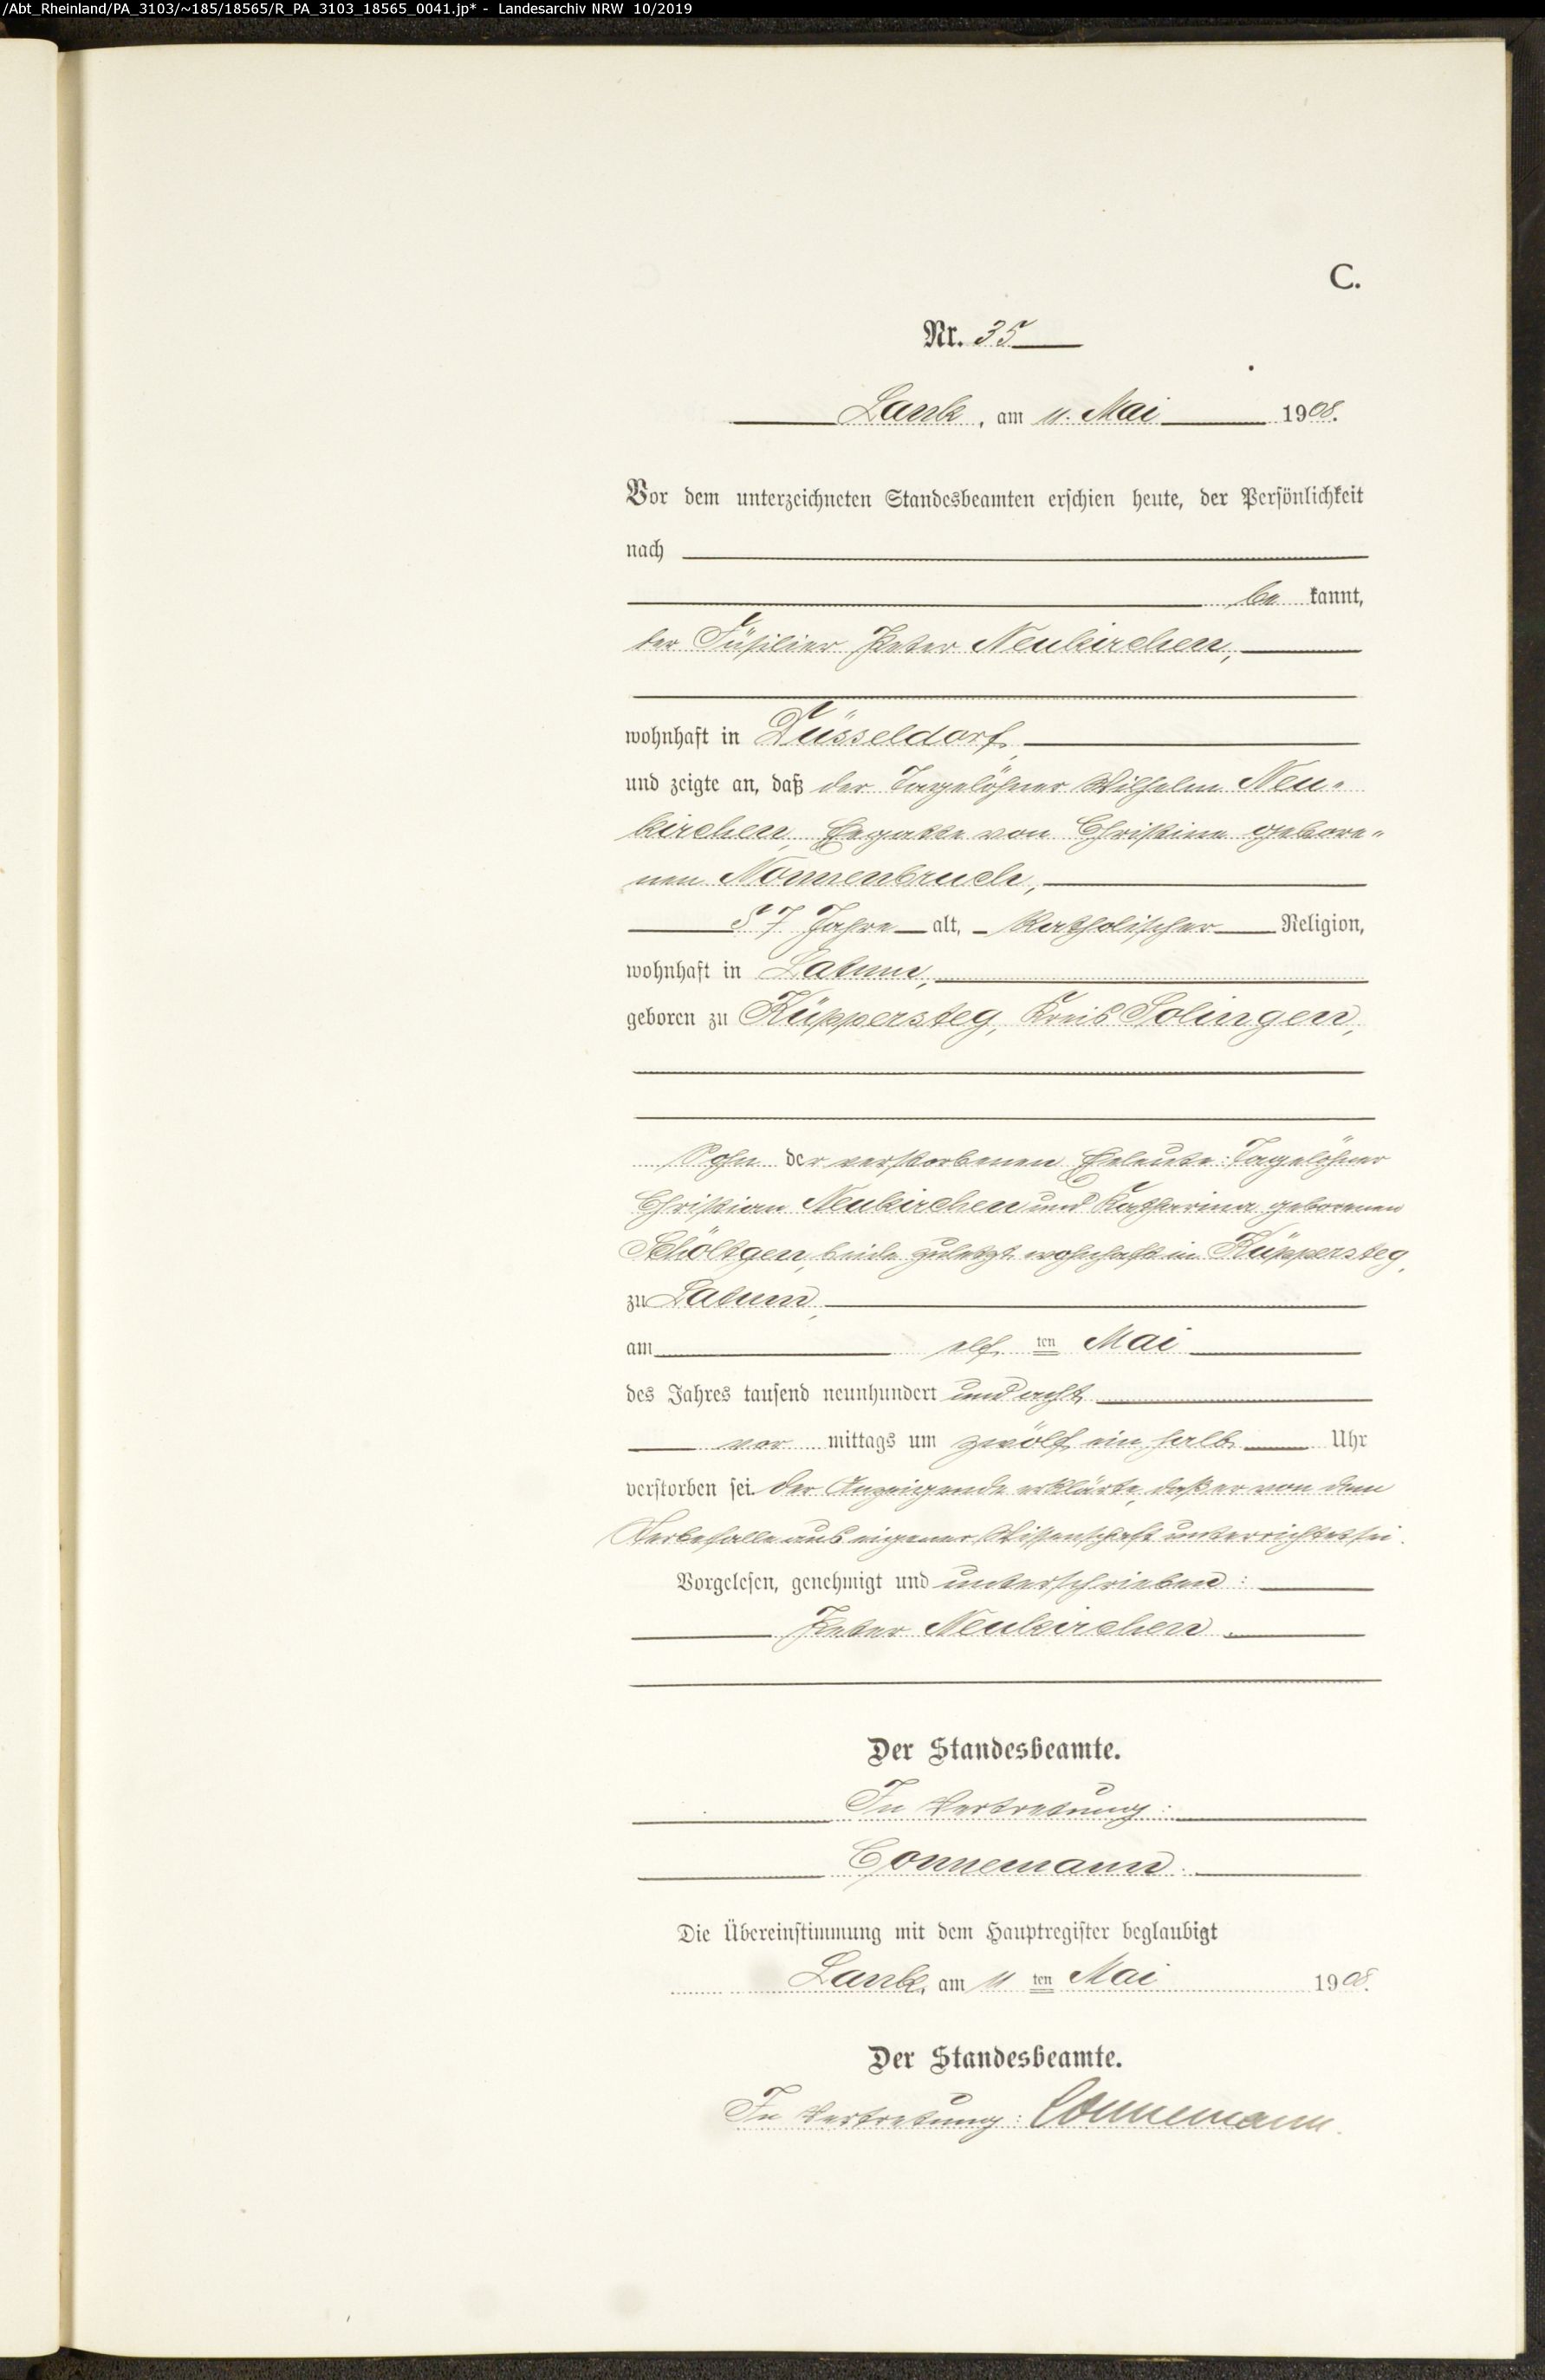 /Abt_Rheinland/PA_3103/~185/18565/R_PA_3103_18565_0041.jp* - Landesarchiv NRW 10/2019
C.
Nr. 35
Lank, am 11. Mai 1908.
Vor dem unterzeichneten Standesbeamten erschien heute, der Persönlichkeit
nach
be kannt,
der Füsilier Peter Neukirchen,
wohnhaft in Düsseldorf,
und zeigte an, daß der Tagelöhner Wilhelm Neu-
kirchen, Ehegatte von Christine gebore-
nen Nonnenbruch,
57 Jahre alt, katholischer Religion,
wohnhaft in Latum,
geboren zu Küppersteg, Kreis Solingen,
Sohn der verstorbenen Eheleute: Tagelöhner
Christian Neukirchen und Katharina geborenen
Schöltgen, beide zuletzt wohnhaft in Küppersteg,
zu Latum,
am elf ten Mai
des Jahres tausend neunhundert und acht
vor mittags um zwölf ein halb Uhr
verstorben sei. Der Anzeigende erklärte, daß er von dem
Sterbefalle aus eigener Wissenschaft unterrichtet sei.
Vorgelesen, genehmigt und unterschrieben:
Peter Neukirchen.
Der Standesbeamte.
In Vertretung:
Connemann.
Die Übereinstimmung mit dem Hauptregister beglaubigt
Lank, am 11 ten Mai 1908.
Der Standesbeamte.
In Vertretung: Connemann.